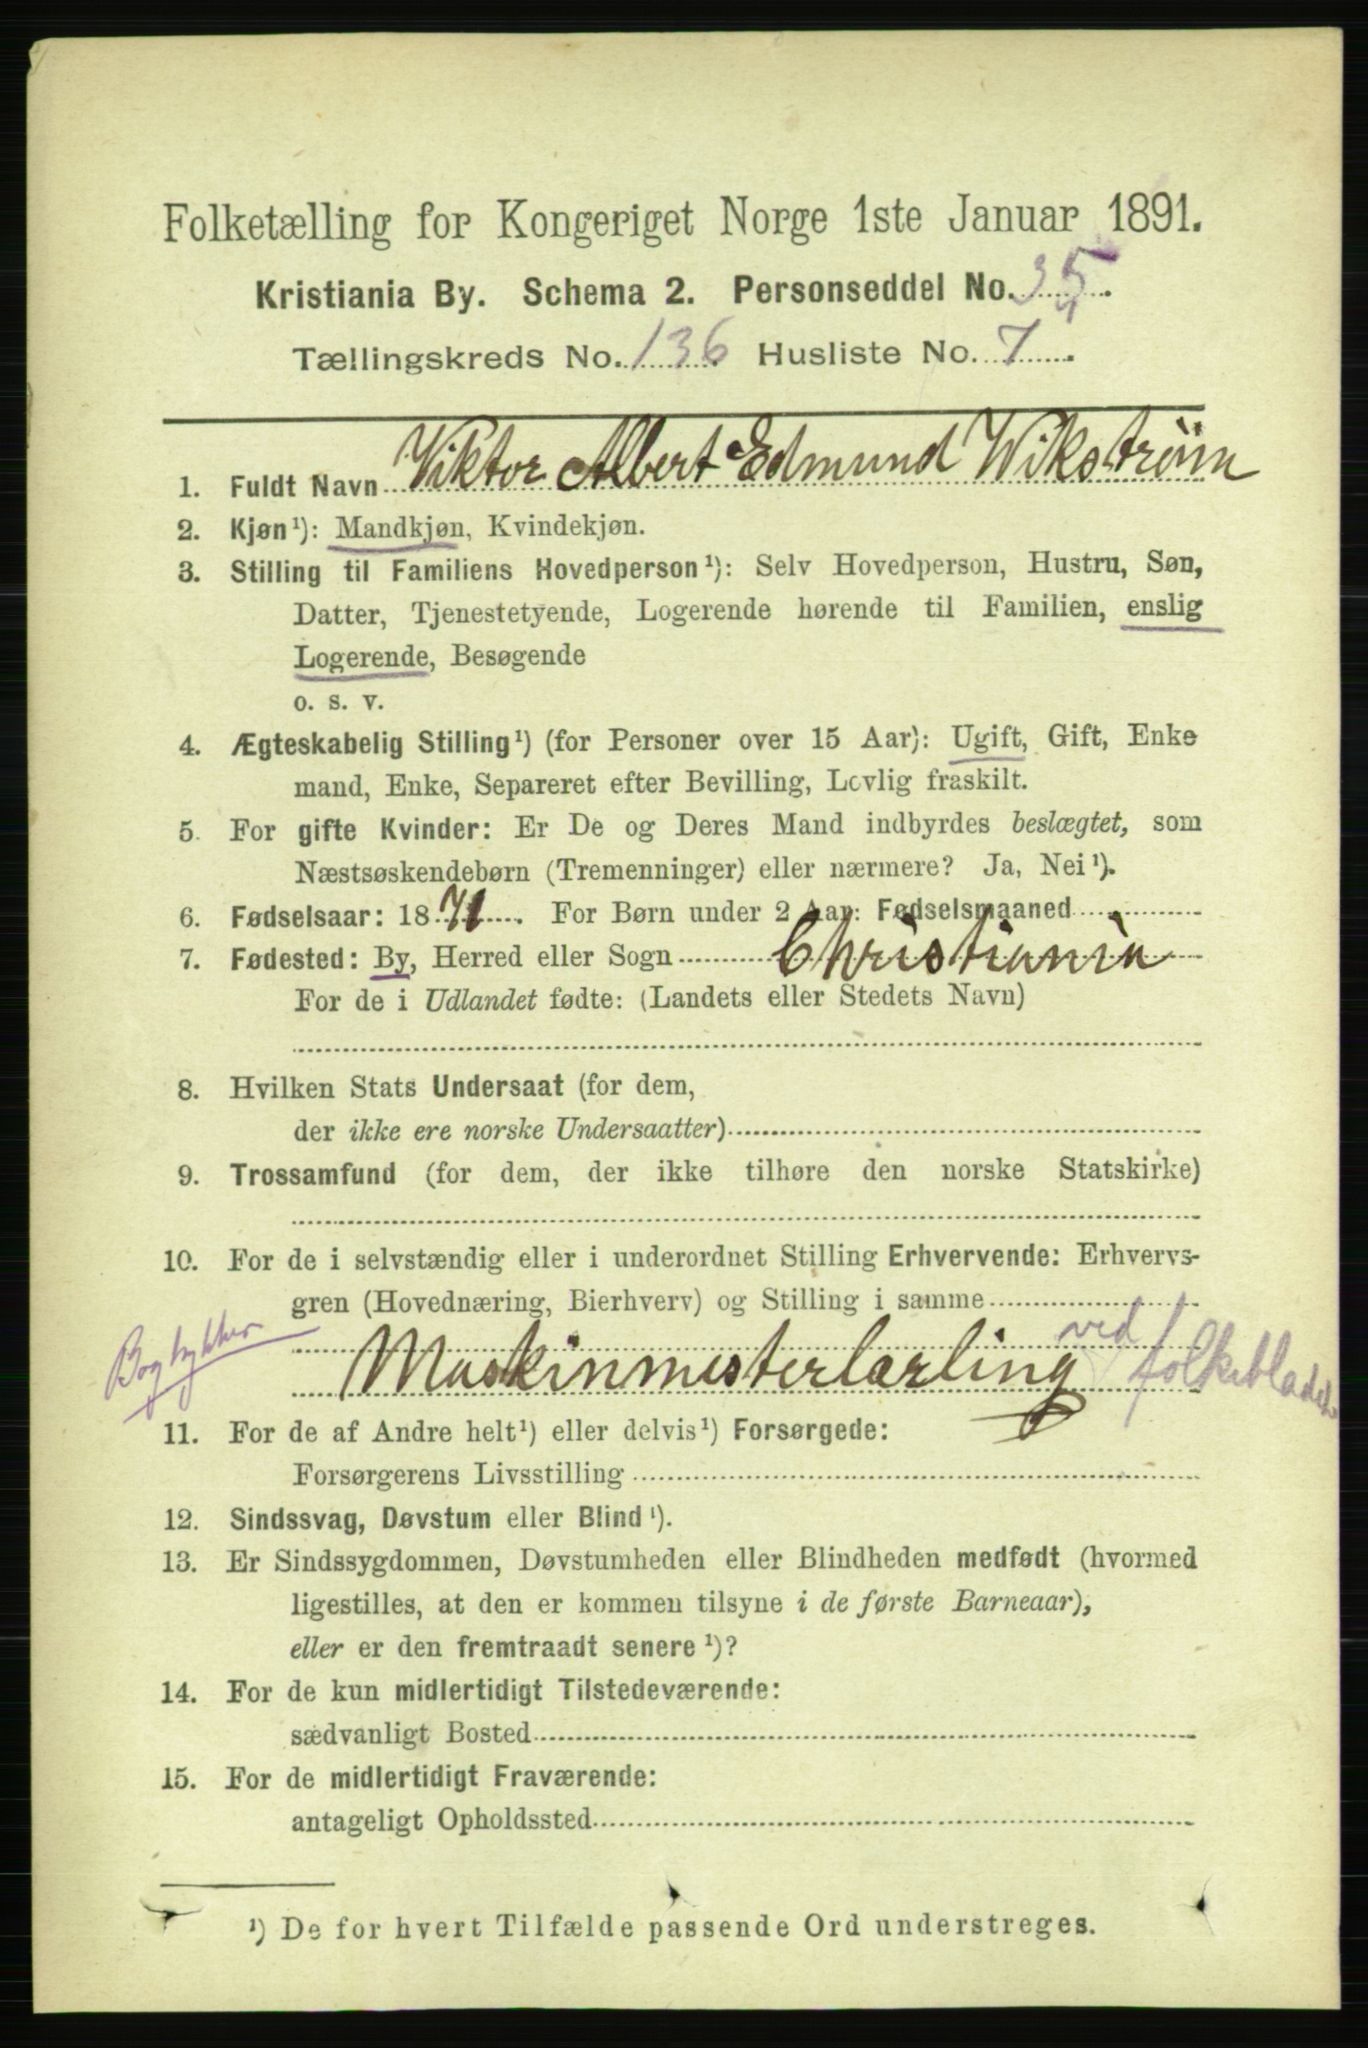 Folketælling for Kongeriget Norge 1ste Januar 1891.
Kristiania By. Schema 2. Personseddel No. 35.
Tællingskreds No. 136 Husliste No. 7.
1. Fuldt Navn Viktor Albert Edmund Wikstrøm
2. Kjøn¹): Mandkjøn, Kvindekjøn.
3. Stilling til Familiens Hovedperson¹): Selv Hovedperson, Hustru, Søn,
Datter, Tjenestetyende, Logerende hørende til Familien, enslig
Logerende, Besøgende
o. s. v.
4. Ægteskabelig Stilling¹) (for Personer over 15 Aar): Ugift, Gift, Enke
mand, Enke, Separeret efter Bevilling, Lovlig fraskilt.
5. For gifte Kvinder: Er De og Deres Mand indbyrdes beslægtet, som
Næstsøskendebørn (Tremenninger) eller nærmere? Ja, Nei¹).
6. Fødselsaar: 1871. For Børn under 2 Aar: Fødselsmaaned
7. Fødested: By, Herred eller Sogn Christiania
For de i Udlandet fødte: (Landets eller Stedets Navn)
8. Hvilken Stats Undersaat (for dem,
der ikke ere norske Undersaatter)
9. Trossamfund (for dem, der ikke tilhøre den norske Statskirke)
10. For de i selvstændig eller i underordnet Stilling Erhvervende: Erhvervs-
gren (Hovednæring, Bierhverv) og Stilling i samme
Bogtykker Maskinmesterlærling ved folkebladet
11. For de af Andre helt¹) eller delvis¹) Forsørgede:
Forsørgerens Livsstilling
12. Sindssvag, Døvstum eller Blind¹).
13. Er Sindssygdommen, Døvstumheden eller Blindheden medfødt (hvormed
ligestilles, at den er kommen tilsyne i de første Barneaar),
eller er den fremtraadt senere¹)?
14. For de kun midlertidigt Tilstedeværende:
sædvanligt Bosted
15. For de midlertidigt Fraværende:
antageligt Opholdssted
¹) De for hvert Tilfælde passende Ord understreges.